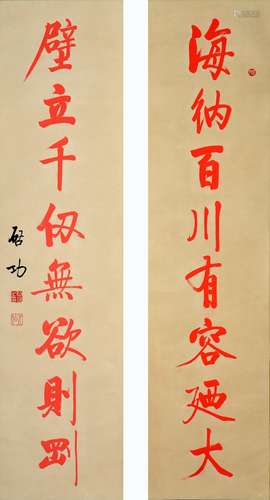 海纳百川有容廼大
壁立千仞無欲則剛
啓功